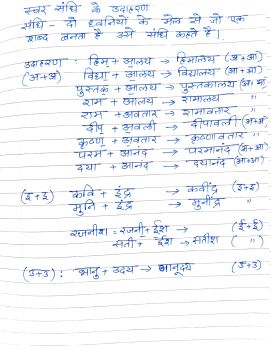 स्वर संधि के उदाहरण
संधि - दो ध्वनियों के मेल से जो एक
शब्द बनता है उसे संधि कहते हैं।
उदाहरण : हिम + आलय → हिमालय (अ+आ)
(अ+अ) विद्या + आलय → विद्यालय (आ+आ)
पुस्तक + आलय → पुस्तकालय (अ+आ)
राम + आलय → रामालय "
राम + अवतार → रामावतार "
दीप + अवली → दीपावली (अ+अ)
कृष्ण + अवतार → कृष्णावतार "
परम + आनंद → परमानंद (अ+आ)
दया + आनंद → दयानंद (आ+आ)
(इ+इ) कवि + इंद्र → कवींद्र (इ+इ)
मुनि + इंद्र → मुनींद्र "
रजनीश = रजनी + ईश → (ई+ई)
सती + ईश → सतीश (")
(उ+उ) : भानु + उदय → भानूदय (उ+उ)